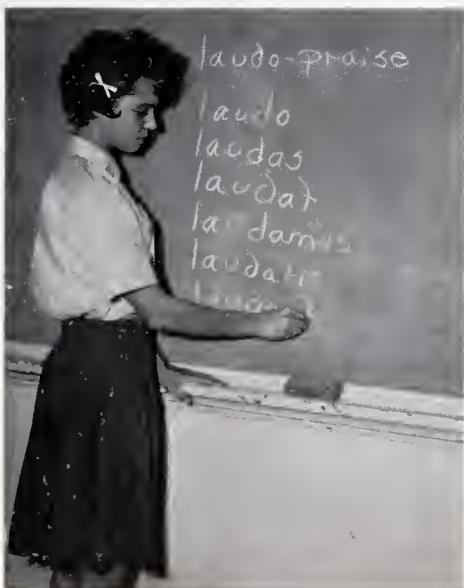 laudo-praise
laudo
laudas
laudat
laudamus
laudatis